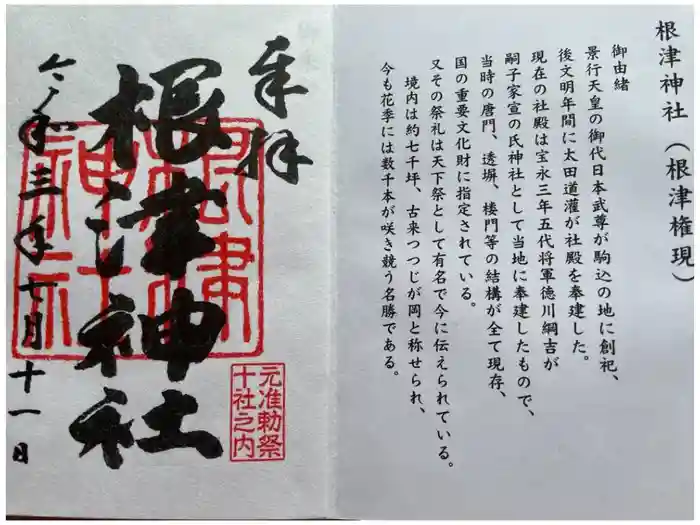 根津神社（根津権現）
御由緒
景行天皇の御代日本武尊が駒込の地に創祀、
後文明年間に太田道灌が社殿を奉建した。
現在の社殿は宝永三年五代将軍徳川綱吉が
嗣子家宣の氏神社として当地に奉建したもので、
当時の唐門、透塀、楼門等の結構が全て現存、
国の重要文化財に指定されている。
又その祭礼は天下祭として有名で今に伝えられている。
境内は約七千坪、古来つつじが岡と称せられ、
今も花季には数千本が咲き競う名勝である。
奉拝
根津神社
根津
神社
元准勅祭
十社之内
令和三年七月十一日